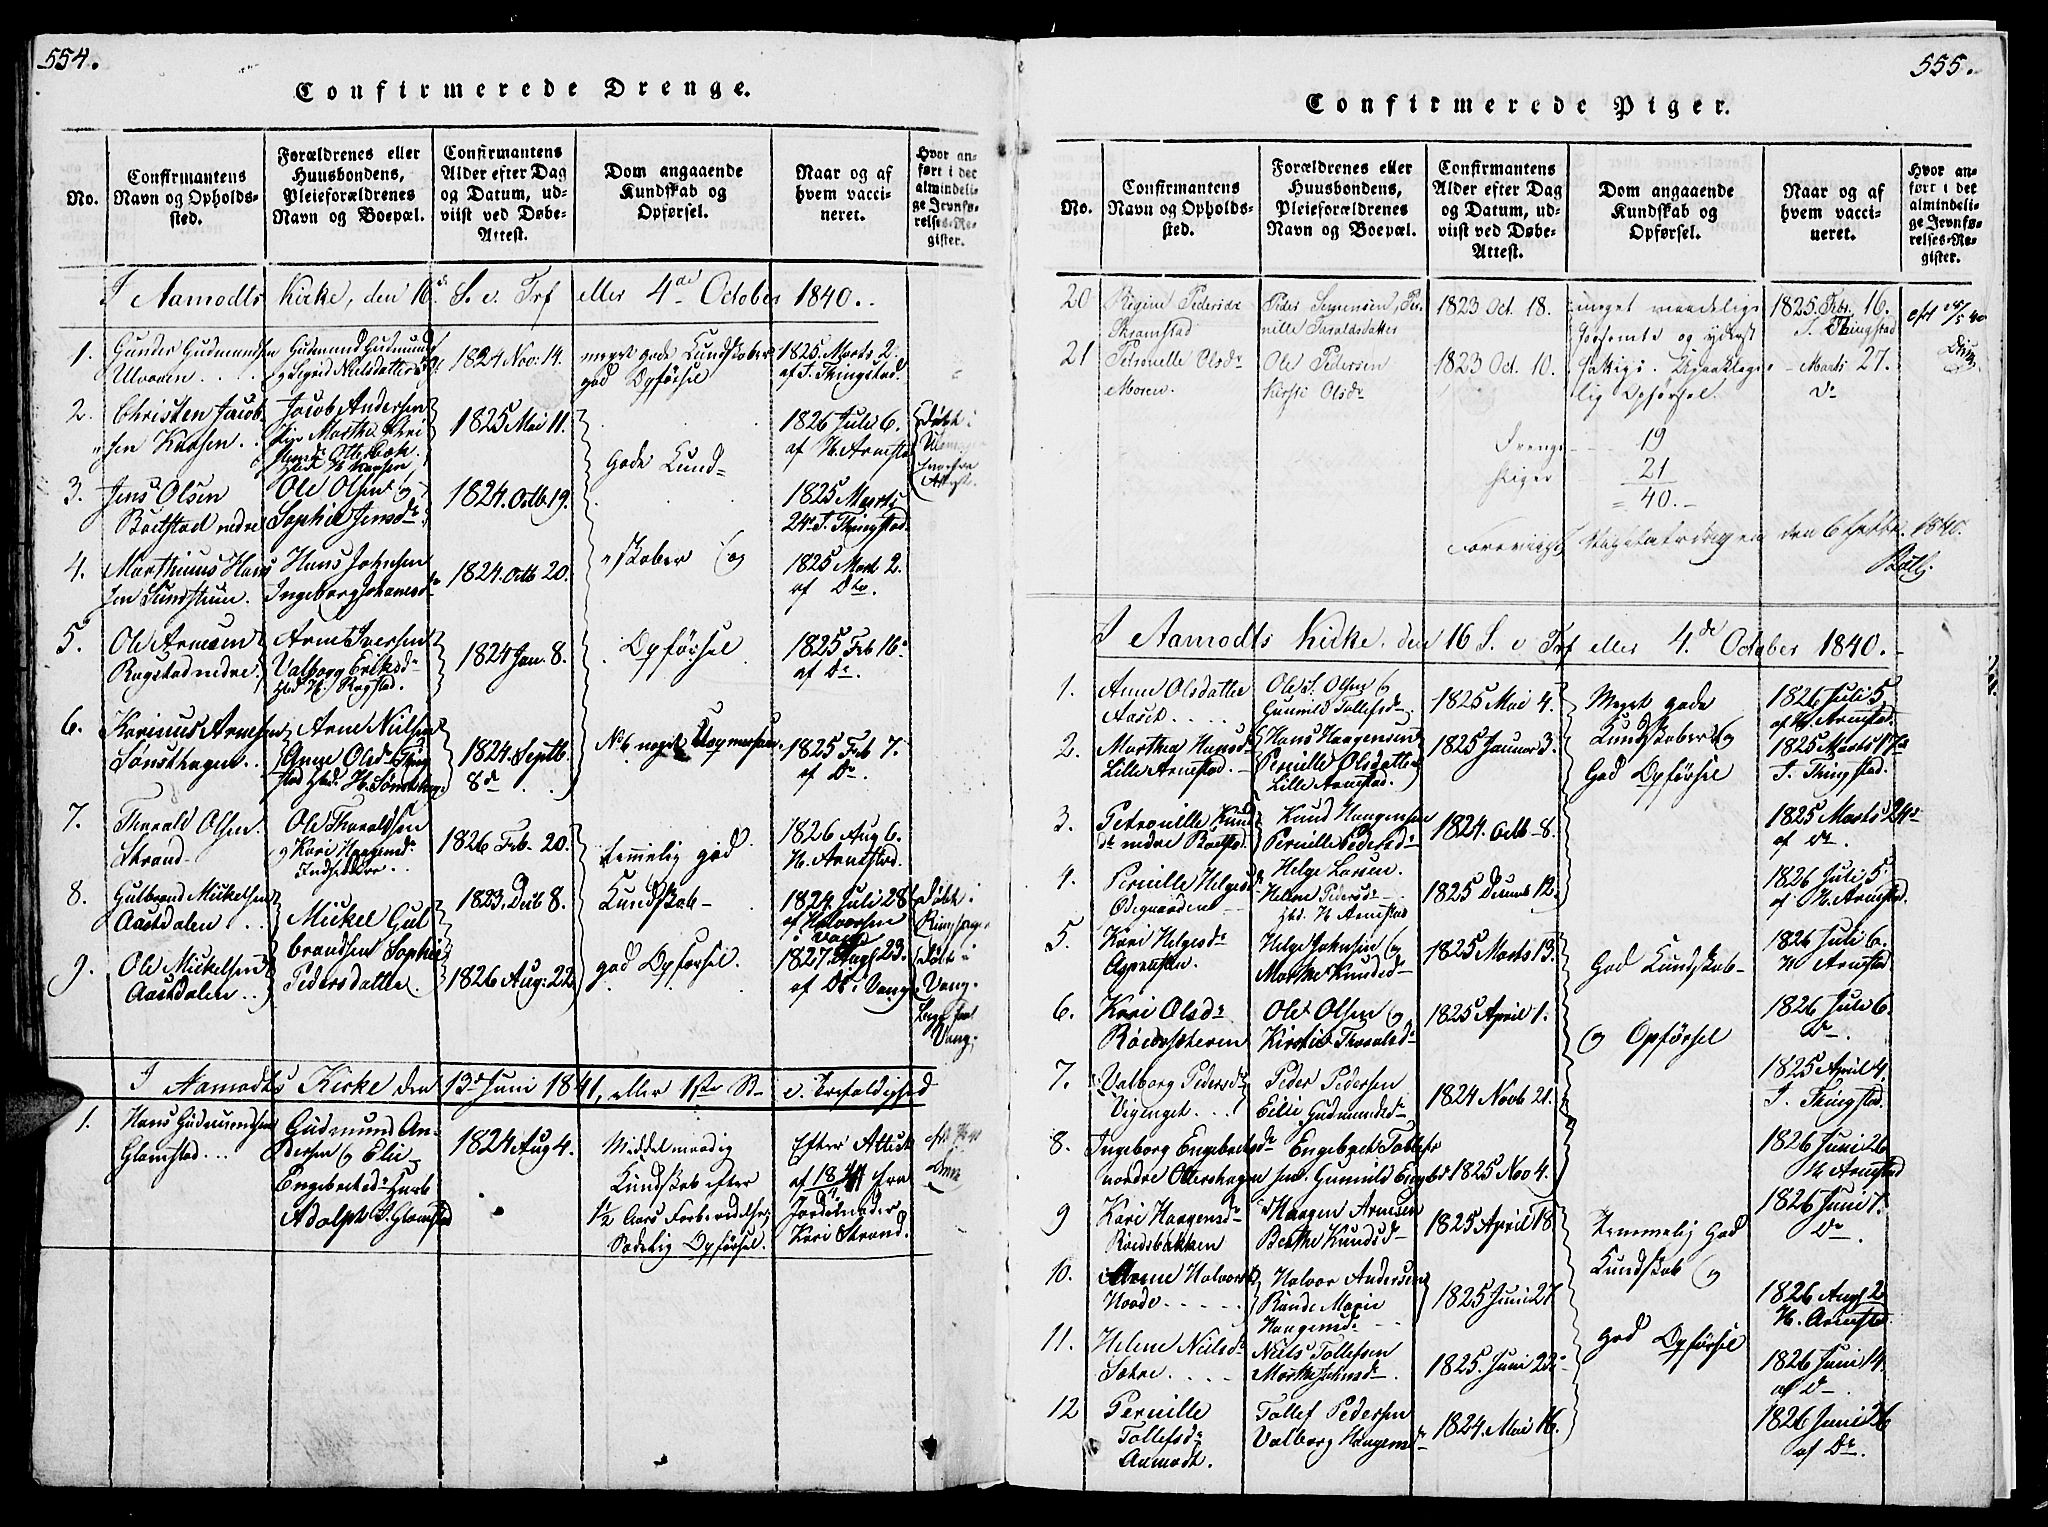 554.
Confirmerede Drenge.
No.
Confirmantens
Navn og Opholds-
sted.
Forældrenes eller
Huusbondens,
Pleieforældrenes
Navn og Boepæl.
Confirmantens
Alder efter Dag
og Datum, ud-
viist ved Døbe-
Attest.
Dom angaaende
Kundskab og
Opførsel.
Naar og af
hvem vacci-
neret.
Hvor an-
ført i det
almindeli-
ge Jevnfø-
relses-Re-
gister.
I Aamodts Kirke, den 16de S. e. Trf eller 4de October 1840.
1.
Gunder Gudmundsen
Ulvaaen
Gudmund Gudmunds
og Sigrid Nielsdatter
1824 Nov: 14.
meget gode Kundskaber
god Opførsel
1825 Marts 2.
af T. Thingstad.
2.
Christen Jacob
sen
Jacob Andersen
Marthe Chri
1825 Mai 11.
1826 Juli 6.
af H. Arnestad
Døbt i
Attest.
3.
Jens Olsen
nedre
Ole Olsen og
Sophie Jensdr
1824. Octb 19.
Gode Kund=
1825 Marts
24. T. Thingstad.
4.
Marthinus Hans
sen
Hans Johnsen
Ingeborg Johannesdr
1824. Octb 20.
skaber og
1825 Marts 2.
af Dto.
5.
Ole Arnesen
Rogstad nedre
Arne Iversen
Valborg Eriksdr
Rogstad.
1824 Jan. 8.
Opførsel
1825 Feb 16
af Do.
6.
Karinus Arnesen
Sønsthagen
Arne Nielsen
Anne Olsdr
1824. Septb.
8de
No 6 noget
1825 Feb 7.
af Do.
7.
Tharald Olsen
Strand
Ole Tharaldsen
og Kari Haagensdr
1826 Feb. 20.
temmelig god
1826 Aug 6.
H. Arnestad.
8.
Gulbrand Mickelsen
Aastdalen
Mickel Gul
1823. Decb 8.
Kundskab
1824 Juli 28
af Halvorsen
i Vang
Døbt i
9.
Ole Mickelsen
Aastdalen
brandsen Sophie
Pedersdatter.
1826 Aug: 22
god Opførsel.
1827. Aug 23.
af Do i Vang
Døbt i
Vang.
Vang.
I Aamodts Kirke den 13de Juni 1841, eller 1ste S. e. Trefoldighed
1.
Hans Gudmundsen
Glomstad
Gudmund An-
dersen og Elie
Engebretsdr
Adolph J. Glomstad
1824 Aug 4.
Middelmaadig
Kundskab efter
1½ Aars Forberedelse;
Sædelig Opførsel.
Efter Attest
af 18 fra
Jordemoder
Kari Strand.
555.
Confirmerede Piger.
No.
Confirmantens
Navn og Opholds-
sted.
Forældrenes eller
Huusbondens,
Pleieforældrenes
Navn og Boepæl.
Confirmantens
Alder efter Dag
og Datum, ud-
viist ved Døbe-
Attest.
Dom angaaende
Kundskab og
Opførsel.
Naar og af
hvem vacci-
neret.
Hvor an-
ført i det
almindeli-
ge Jevnfø-
relses-Re-
gister.
20
Regine Pedersdr
Kramstad
Peder Sørensen, Per-
nille Taraldsdatter
1823 Oct. 18.
meget maadelig
1825. Febr. 16.
T. Thingstad
21
Petronelle Olsdr
Moren.
Ole Pedersen
Kirsti Olsdr
1823 Oct. 10.
og yderst
Upaaklage
lig Opførsel.
Marts 27.
Do
Drenge 19
Piger 21
= 40.
den 6 1840.
I Aamodts Kirke, den 16 S. e Trf eller 4. de October 1840.
1.
Anne Olsdatter
Aaset
Ole S. Olsen og
Gunnild Tollefsdr
1825 Mai 4.
Meget gode
1826 Juli 5
af H. Arnestad.
2.
Marthea Hansdr
Lille Arnestad.
Hans Haagensen
Pernille Olsdatter
Lille Arnestad.
1825 Januar 3.
Kundskaber og
God Opførsel
1825 Marts 17
T. Thingstad.
3.
Petronille Knuds
dr nedre
Knud Haagensen
Pernille Pedersdr
1824. Octb 8.
1825 Marts 24
af Do.
4.
Pernille Helgesdr
Ødegaarden
Helge Larsen.
Helene Pedersdr
H Arnestad
1825 12.
1826 Juli 5.
af H. Arnestad.
5.
Kari Helgesdr
Helge Johnsen og
Marthe Knudsdr
1825 Marts 13.
God Kundskab
1826 Juli 6.
H Arnestad.
6.
Kari Olsdr
Ole Olsen og
Kirstie Tharaldsdr
1825 April 1.
og Opførsel
1826 Juli 6.
Do.
7.
Valborg Pedersdr
Peder Pedersen
Eilie Gudmundsdr
1824 Novb 21.
1825 April 4.
T. Thingstad.
8.
Ingeborg Engebretsdr
nordre
Engebret Tollef
sen. Gunnild Engebr
1825 Nov 4.
1826 Juni 26
H Arnestad
9
Kari Haagensdr
Haagen Arnesen
Berthe Knudsdr
1825 April 18
Temmelig God
1826 Juni 1.
Do
10.
Anne Halvorsdr
Haade
Halvor Andersen
Rande Marie
Haagensdr
1825 Juni 27
Kundskab og
1826 Aug 2
H. Arnestad.
11.
Helene Nielsdr
Niels Tollefsen
Marthe Johnsdr
1825. Juni 22
god Opførsel
1826 Juni 14.
af Do
12
Pernille
Tollefsdr
Aamodt.
Tollef Pedersen
Valborg Haagensdr
1824. Mai 16.
1826 Juni 26
af Do.